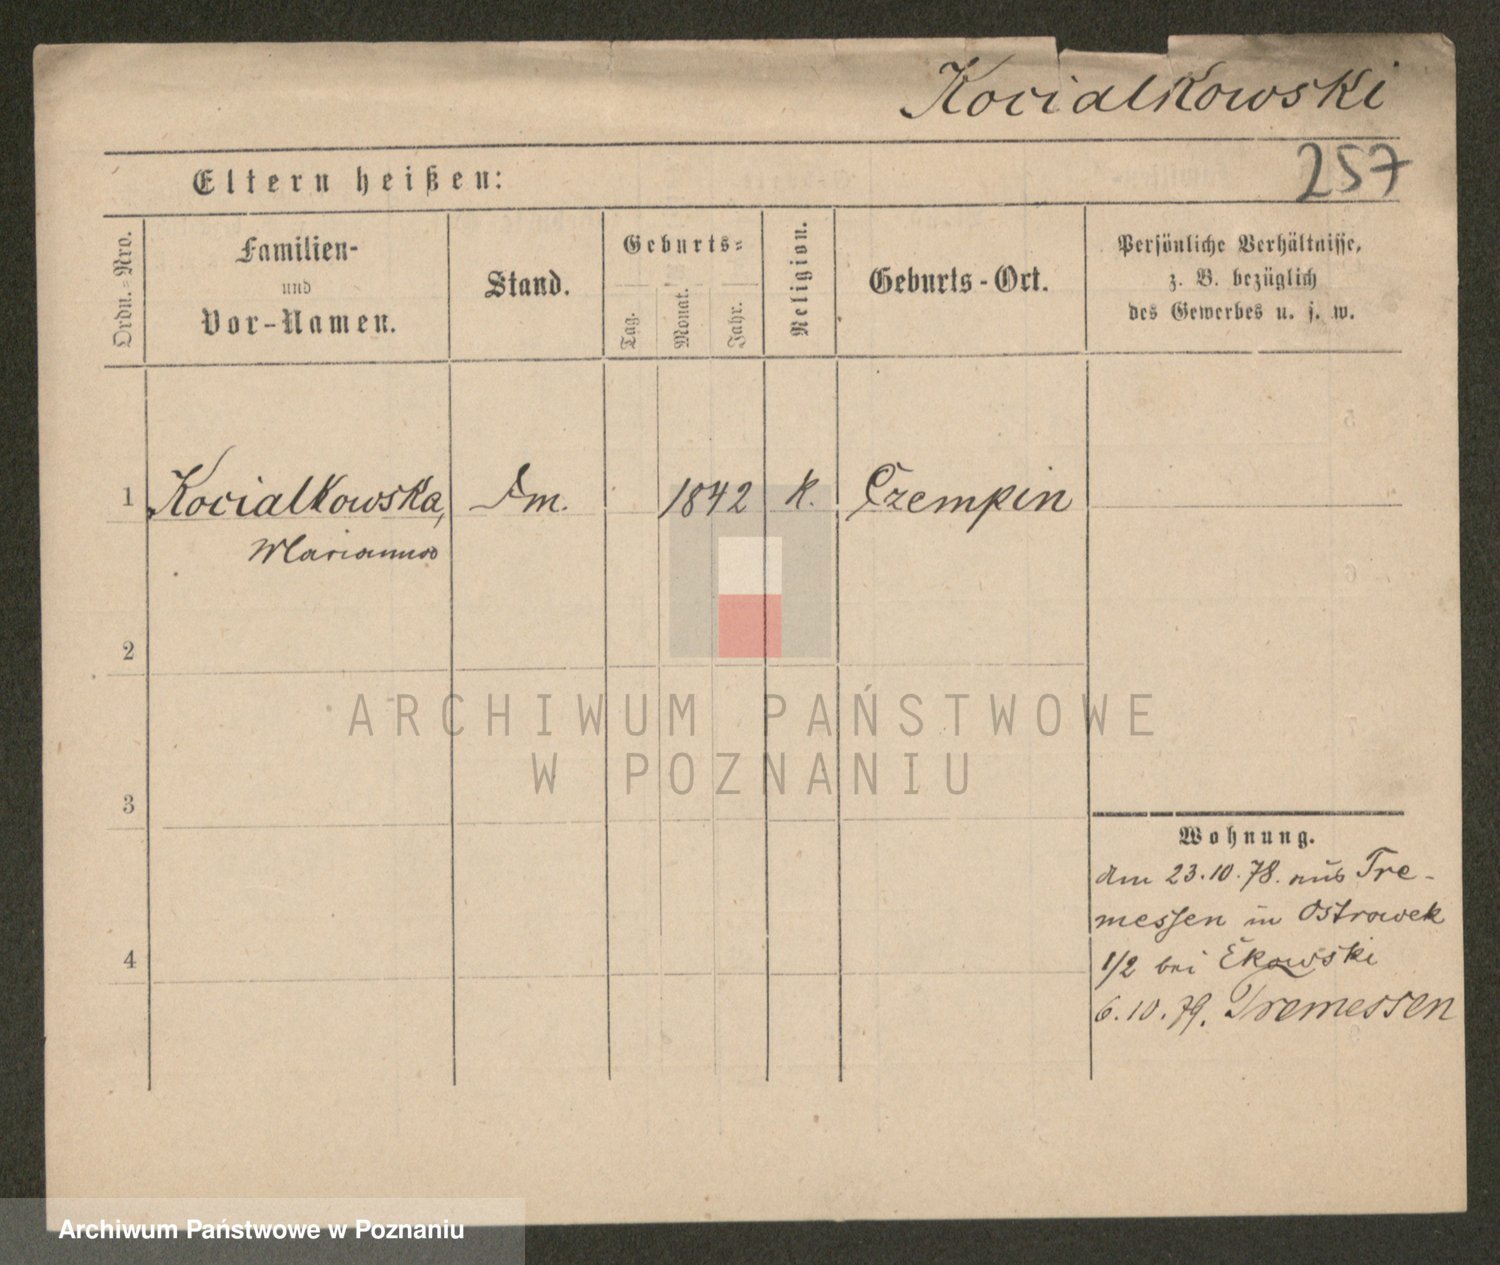 Kocialkowski
257
Eltern heißen:
Ordn.=Nro.
Familien-
und
Vor-Namen.
Stand.
Geburts=
Tag.
Monat.
Jahr.
Religion.
Geburts-Ort.
Persönliche Verhältnisse,
z. B. bezüglich
des Gewerbes u. s. w.
1 Kocialkowska, 1842 k. Czempin
Marianna
2
3
4
Wohnung.
am 23.10.78. aus Tre-
messen in Ostrowek
1/2 bei
6.10.79. Tremessen
ARCHIWUM PAŃSTWOWE
W POZNANIU
Archiwum Państwowe w Poznaniu